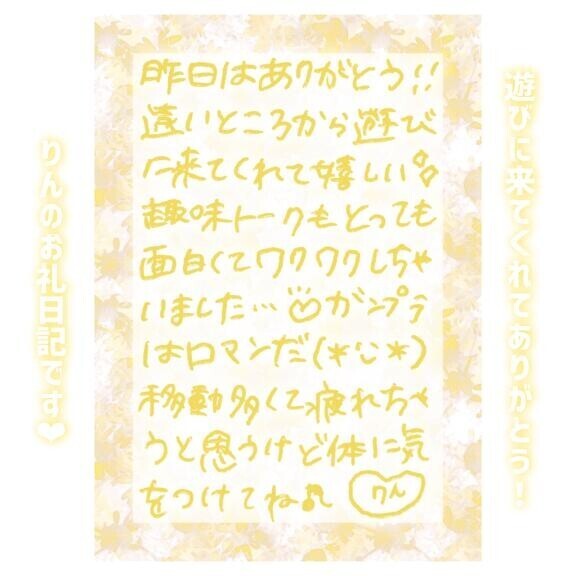 遊びに来てくれてありがとう！
昨日はありがとう!!
遠いところから遊び
に来てくれて嬉しい
趣味トークもとっても
面白くてワクワクしちゃ
いました…♡ガンプラ
はロマンだ(*'ᴗ'*)
移動多くて疲れちゃ
うと思うけど体に気
をつけてね♪ りん
りんのお礼日記です❤